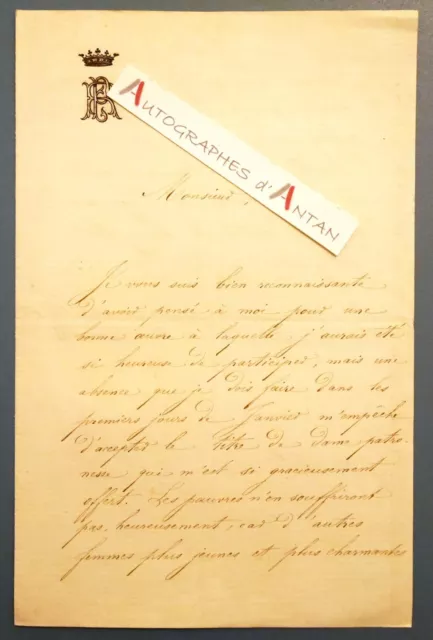 AUTOGRAPHES d'ANTAN
Monsieur,
Je vous suis bien reconnaissante
d'avoir pensé à moi pour une
bonne œuvre à laquelle j'aurais été
si heureuse de participer, mais une
absence que je dois faire dans les
premiers jours de Janvier m'empêche
d'accepter le titre de dame patro-
nesse qui m'est si gracieusement
offert. Les pauvres n'en souffriront
pas, heureusement, car d'autres
femmes plus jeunes et plus charmantes